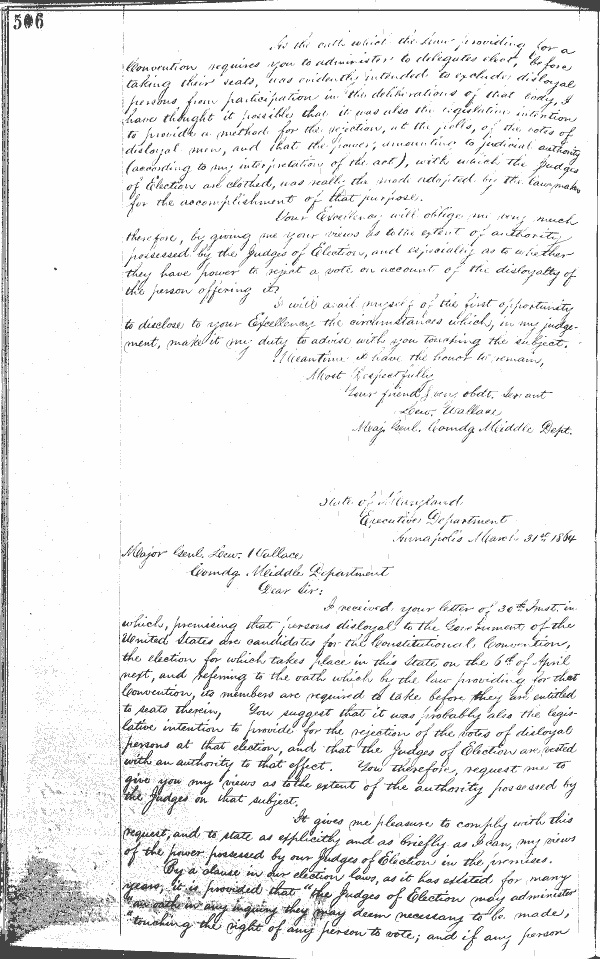 506
As the oath which the Law providing for a
Convention requires you to administer to delegates elect, before
taking their seats, was evidently intended to exclude disloyal
persons from participation in the deliberations of that body, I
have thought it possible that it was also the legislative intention
to provide a method for the rejection, at the polls, of the votes of
disloyal men, and that the power, amounting to judicial authority
(according to my interpretation of the act), with which the Judges
of Election are clothed, was really the mode adopted by the lawmaker
for the accomplishment of that purpose.
Your Excellency will oblige me very much
therefore, by giving me your views as to the extent of authority
possessed by the Judges of Election, and especially as to whether
they have power to reject a vote on account of the disloyalty of
the person offering it?
I will avail myself of the first opportunity
to disclose to your Excellency the circumstances which, in my judge-
ment, make it my duty to advise with you touching the subject.
Meantime I have the honor to remain,
Most Respectfully
Your friend & very obdt. Servant
Lew. Wallace
Maj. Genl. Comdg Middle Dept.
State of Maryland
Executive Department
Annapolis March 31st 1864
Major Genl. Lew. Wallace
Comdg. Middle Department
Dear Sir:
I received your letter of 30th Inst. in
which, premising that persons disloyal to the Government of the
United States are candidates for the Constitutional Convention,
the election for which takes place in this State, on the 6th of April
next, and referring to the oath which by the law providing for that
Convention, its members are required to take before they are entitled
to seats therein, You suggest that it was probably also the legis-
lative intention to provide for the rejection of the votes of disloyal
persons at that election, and that the Judges of Election are vested
with an authority to that effect. You therefore, request me to
give you my views as to the extent of the authority possessed by
the Judges on that subject.
It gives me pleasure to comply with this
request, and to state as explicitly and as briefly as I can, my views
of the power possessed by our Judges of Election in the premises.
By a clause in our election laws, as it has existed for many
years, it is provided that "the Judges of Election may administer
"an oath in any inquiry they may deem necessary to be made,
"touching the right of any person to vote; and if any person